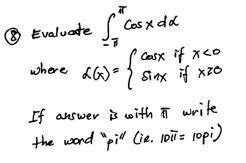 ⑧ Evaluate ∫_{-π}^{π} cosx dα
where α(x) = { cosx if x<0
sinx if x≥0
If answer is with π write
the word "pi" (ie. 10π = 10pi)